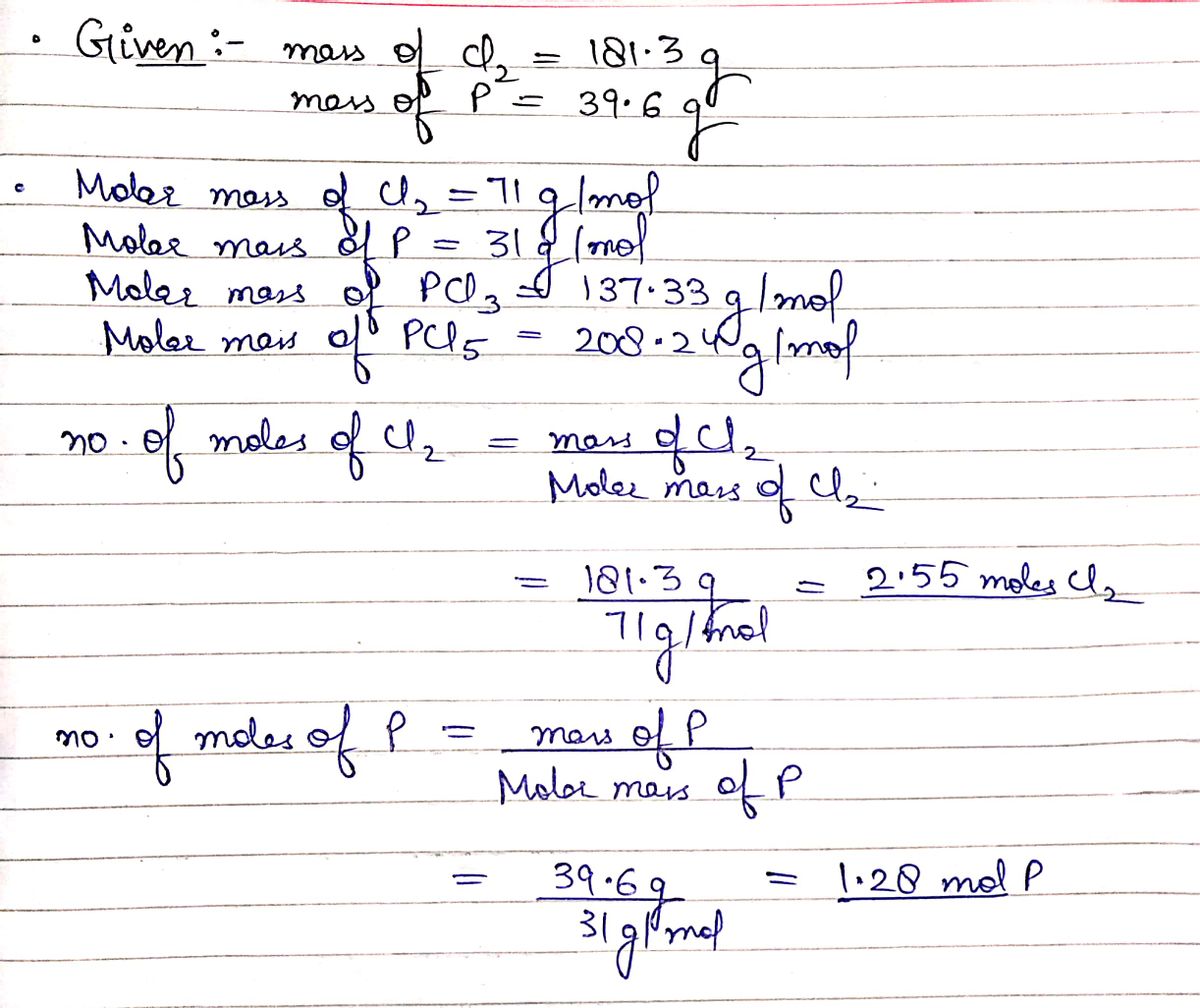 • Given :- mass of Cl₂ = 181.3 g
mass of P = 39.6 g
• Molar mass of Cl₂ = 71 g/mol
Molar mass of P = 31 g/mol
Molar mass of PCl₃ = 137.33 g/mol
Molar mass of PCl₅ = 208.24 g/mol
no. of moles of Cl₂ = mass of Cl₂
Molar mass of Cl₂.
= 181.3 g = 2.55 moles Cl₂
71 g/mol
no. of moles of P = mass of P
Molar mass of P
= 39.6 g = 1.28 mol P
31 g/mol